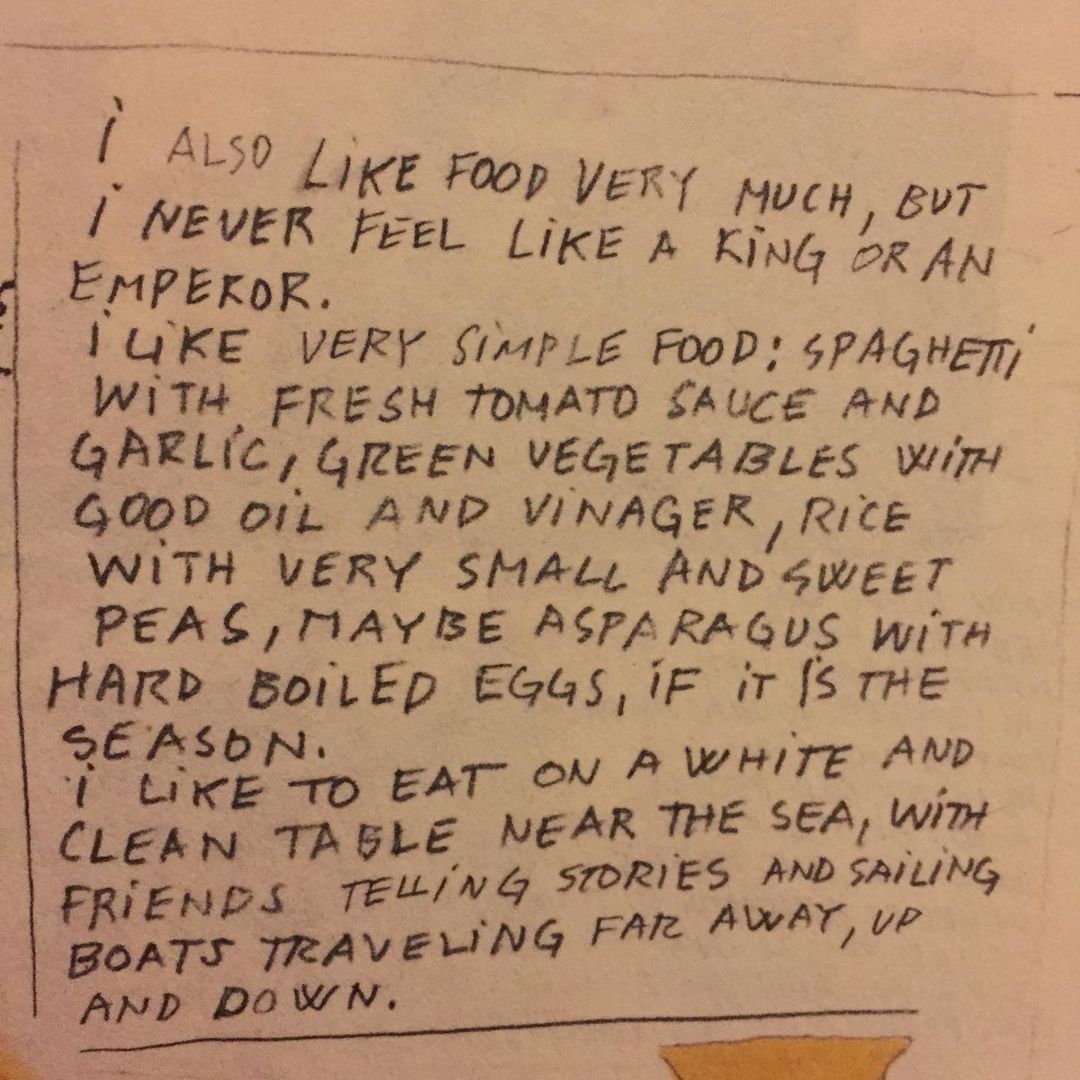 i ALSO LiKE FOOD VERY MUCH, BUT
i NEVER FEEL LiKE A KiNG OR AN
EMPEROR.
i LiKE VERY SiMPLE FOOD: SPAGHETTi
WiTH FRESH TOMATO SAUCE AND
GARLiC, GREEN VEGETABLES WiTH
GOOD OiL AND ViNAGER, RiCE
WiTH VERY SMALL AND SWEET
PEAS, MAYBE ASPARAGUS WiTH
HARD BOiLED EGGS, iF iT iS THE
SEASON.
i LiKE TO EAT ON A WHiTE AND
CLEAN TABLE NEAR THE SEA, WiTH
FRiENDS TELLiNG STORiES AND SAiLiNG
BOATS TRAVELiNG FAR AWAY, UP
AND DOWN.